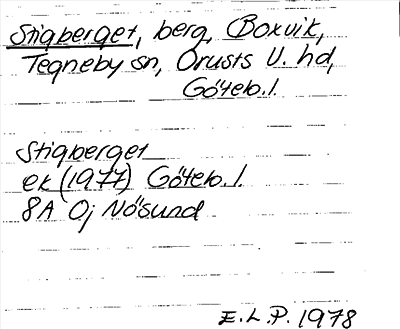 Stigberget, berg, Boxvik,
Tegneby sn, Orusts V. hd,
Göteb. l.
Stigberget
ek (1977) Göteb. l.
8A 0j Nösund
E.L.P. 1978